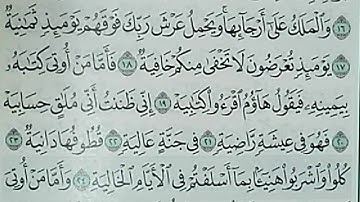 ١٦ وَالْمَلَكُ عَلَىٰ أَرْجَائِهَا وَيَحْمِلُ عَرْشَ رَبِّكَ فَوْقَهُمْ يَوْمَئِذٍ ثَمَانِيَةٌ
١٧ يَوْمَئِذٍ تُعْرَضُونَ لَا تَخْفَىٰ مِنكُمْ خَافِيَةٌ ١٨ فَأَمَّا مَنْ أُوتِيَ كِتَابَهُ
بِيَمِينِهِ فَيَقُولُ هَاؤُمُ اقْرَءُوا كِتَابِيَهْ ١٩ إِنِّي ظَنَنتُ أَنِّي مُلَاقٍ حِسَابِيَهْ
٢٠ فَهُوَ فِي عِيشَةٍ رَّاضِيَةٍ ٢١ فِي جَنَّةٍ عَالِيَةٍ ٢٢ قُطُوفُهَا دَانِيَةٌ ٢٣
كُلُوا وَاشْرَبُوا هَنِيئًا بِمَا أَسْلَفْتُمْ فِي الْأَيَّامِ الْخَالِيَةِ ٢٤ وَأَمَّا مَنْ أُوتِيَ